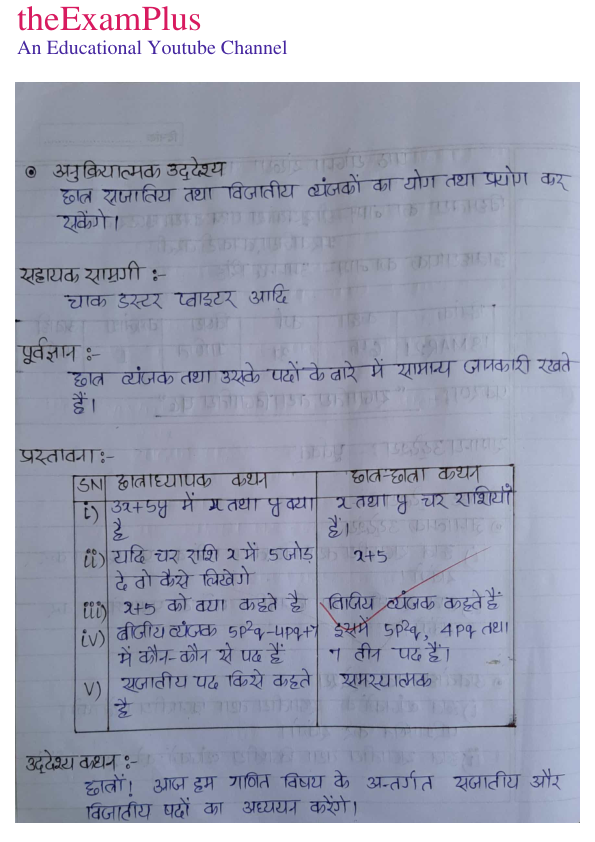 theExamPlus
An Educational Youtube Channel
अनुक्रियात्मक उद्देश्य
छात्र सजातिय तथा विजातीय व्यंजकों का योग तथा प्रयोग कर
सकेंगे।
सहायक सामग्री :-
चाक डस्टर प्वाइटर आदि
पूर्वज्ञान :-
छात्र व्यंजक तथा उसके पदों के बारे में सामान्य जानकारी रखते
हैं।
प्रस्तावना :-
SN छात्राध्यापक कथन छात्र-छात्रा कथन
i) 3x+5y में x तथा y क्या x तथा y चर राशियाँ
है हैं।
ii) यदि चर राशि x में 5 जोड़ x+5
दे तो कैसे लिखेगे
iii) x+5 को क्या कहते है विजिय व्यंजक कहते हैं
iv) बीजीय व्यंजक 5p²q-4pq+7 इसमें 5p²q, 4pq तथा
में कौन-कौन से पद हैं 7 तीन पद हैं।
v) सजातीय पद किसे कहते समस्यात्मक
है
उद्देश्य कथन :-
छात्रों! आज हम गणित विषय के अन्तर्गत सजातीय और
विजातीय पदों का अध्ययन करेंगे।